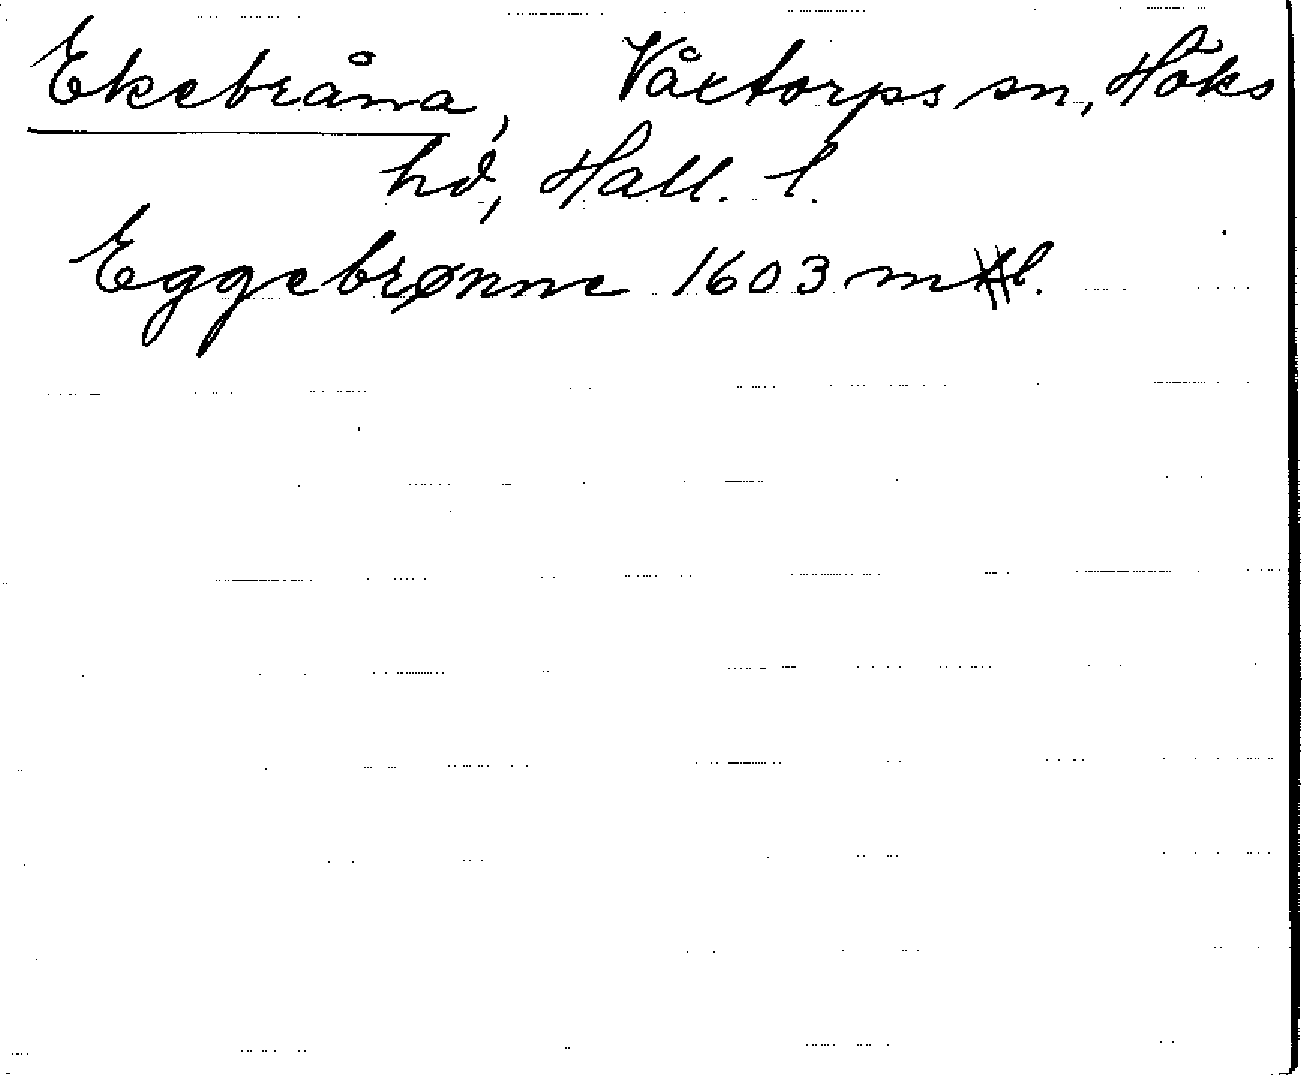 Ekebråna, Våxtorps sn, Höks
hd, Hall. l.
Eggebrønne 1603 ml.